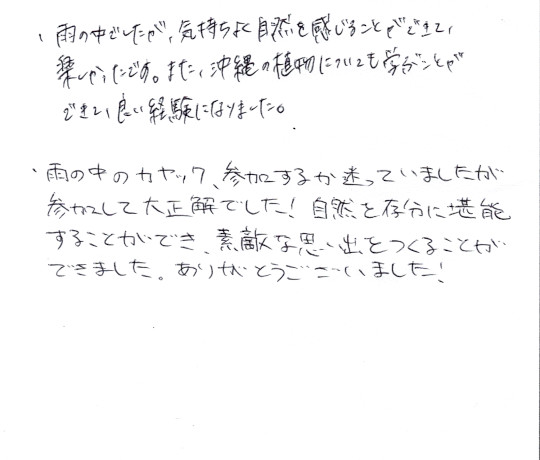 ・雨の中でしたが、気持ちよく自然を感じることができて、
楽しかったです。また、沖縄の植物についても学ぶことが
できて、良い経験になりました。
・雨の中のカヤック、参加するか迷っていましたが
参加して大正解でした！自然を存分に堪能
することができ、素敵な思い出をつくることが
できました。ありがとうございました！